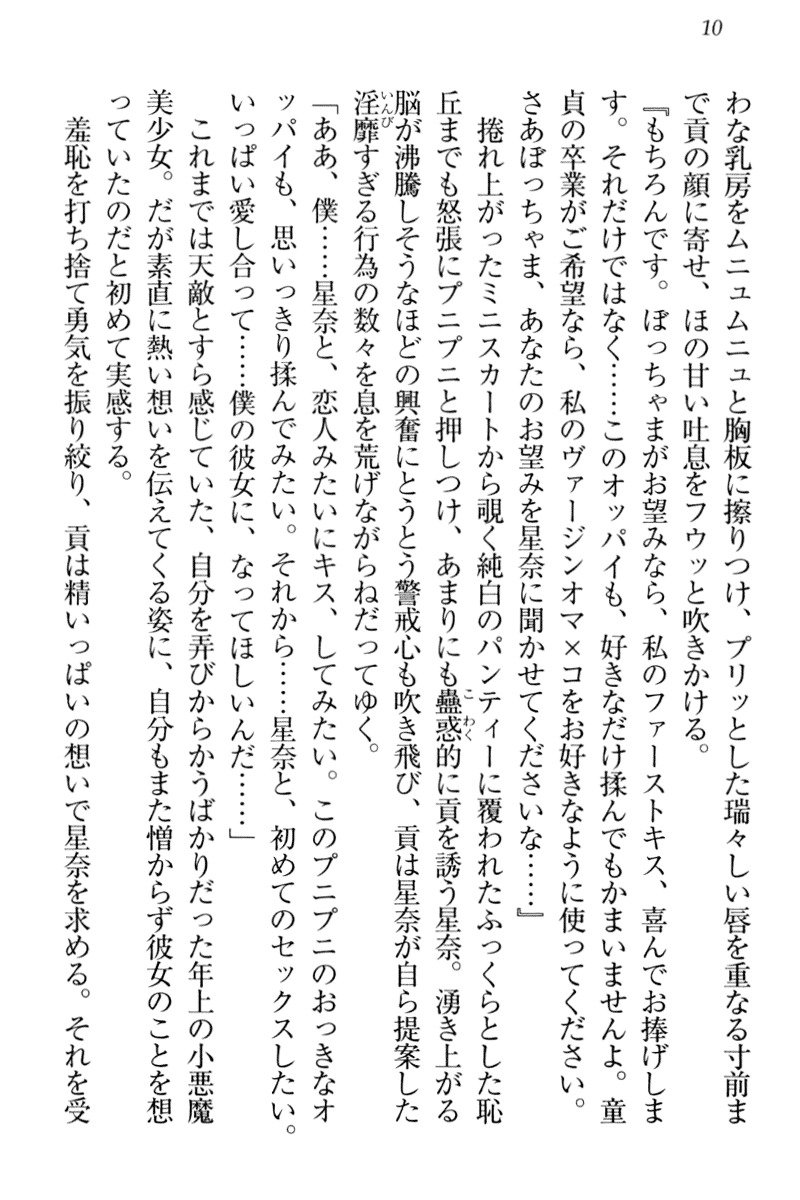 10
わな乳房をムニュムニュと胸板に擦りつけ、プリッとした瑞々しい唇を重なる寸前ま
で貢の顔に寄せ、ほの甘い吐息をフウッと吹きかける。
『もちろんです。ぼっちゃまがお望みなら、私のファーストキス、喜んでお捧げしま
す。それだけではなく……このオッパイも、好きなだけ揉んでもかまいませんよ。童
貞の卒業がご希望なら、私のヴァージンオマ×コをお好きなように使ってください。
さあぼっちゃま、あなたのお望みを星奈に聞かせてくださいな……』
捲れ上がったミニスカートから覗く純白のパンティーに覆われたふっくらとした恥
丘までも怒張にプニプニと押しつけ、あまりにも蠱惑的に貢を誘う星奈。湧き上がる
脳が沸騰しそうなほどの興奮にとうとう警戒心も吹き飛び、貢は星奈が自ら提案した
淫靡すぎる行為の数々を息を荒げながらねだってゆく。
「ああ、僕……星奈と、恋人みたいにキス、してみたい。このプニプニのおっきなオ
ッパイも、思いっきり揉んでみたい。それから……星奈と、初めてのセックスしたい。
いっぱい愛し合って……僕の彼女に、なってほしいんだ……」
これまでは天敵とすら感じていた、自分を弄びからかうばかりだった年上の小悪魔
美少女。だが素直に熱い想いを伝えてくる姿に、自分もまた憎からず彼女のことを想
っていたのだと初めて実感する。
羞恥を打ち捨て勇気を振り絞り、貢は精いっぱいの想いで星奈を求める。それを受